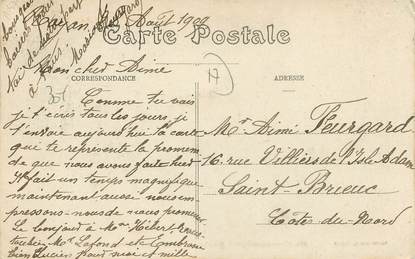 Août 190
Carte Postale
Mon cher Aimé
CORRESPONDANCE
ADRESSE
Comme tu vois
je t'écris tous les jours, je
t'envoie aujourd'hui la carte
qui te représente la promena
de que nous avons fait hier
Il fait un temps magnifique
maintenant aussi nous em
pressons-nous de nous promener
Le bonjour à Mme
Mr Lafond et
bien Lucien pour moi et mille
baisers
à tous
Mr Aimé Feurgard
16, rue Villiers de l'Isle Adam
Saint-Brieuc
Côtes-du-Nord